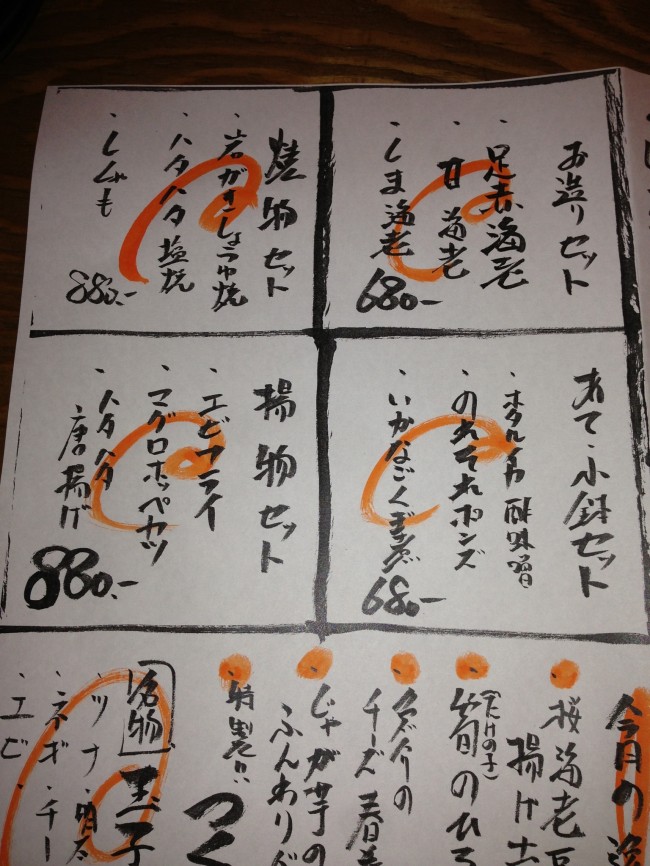 お造りセット
・足赤海老
・甘海老
・しま海老
680.-
焼物セット
・岩がきしょうゆ焼
・ハタハタ塩焼
・ししゃも
880.-
あて・小鉢セット
・ホタルイカ酢味噌
・のれそれポンズ
・いかなごくぎ煮
680.-
揚物セット
・エビフライ
・マグロホッペカツ
・ハタハタ
唐揚げ
880.-
今月の
・桜海老豆
揚げ
(たけのこ)
・筍のひろ
・クワイの
チーズ春
・じゃが芋の
ふんわり
・特製!!
つく
名物
玉子
・ツナ・明太
・ネギ・チー
・エビ・